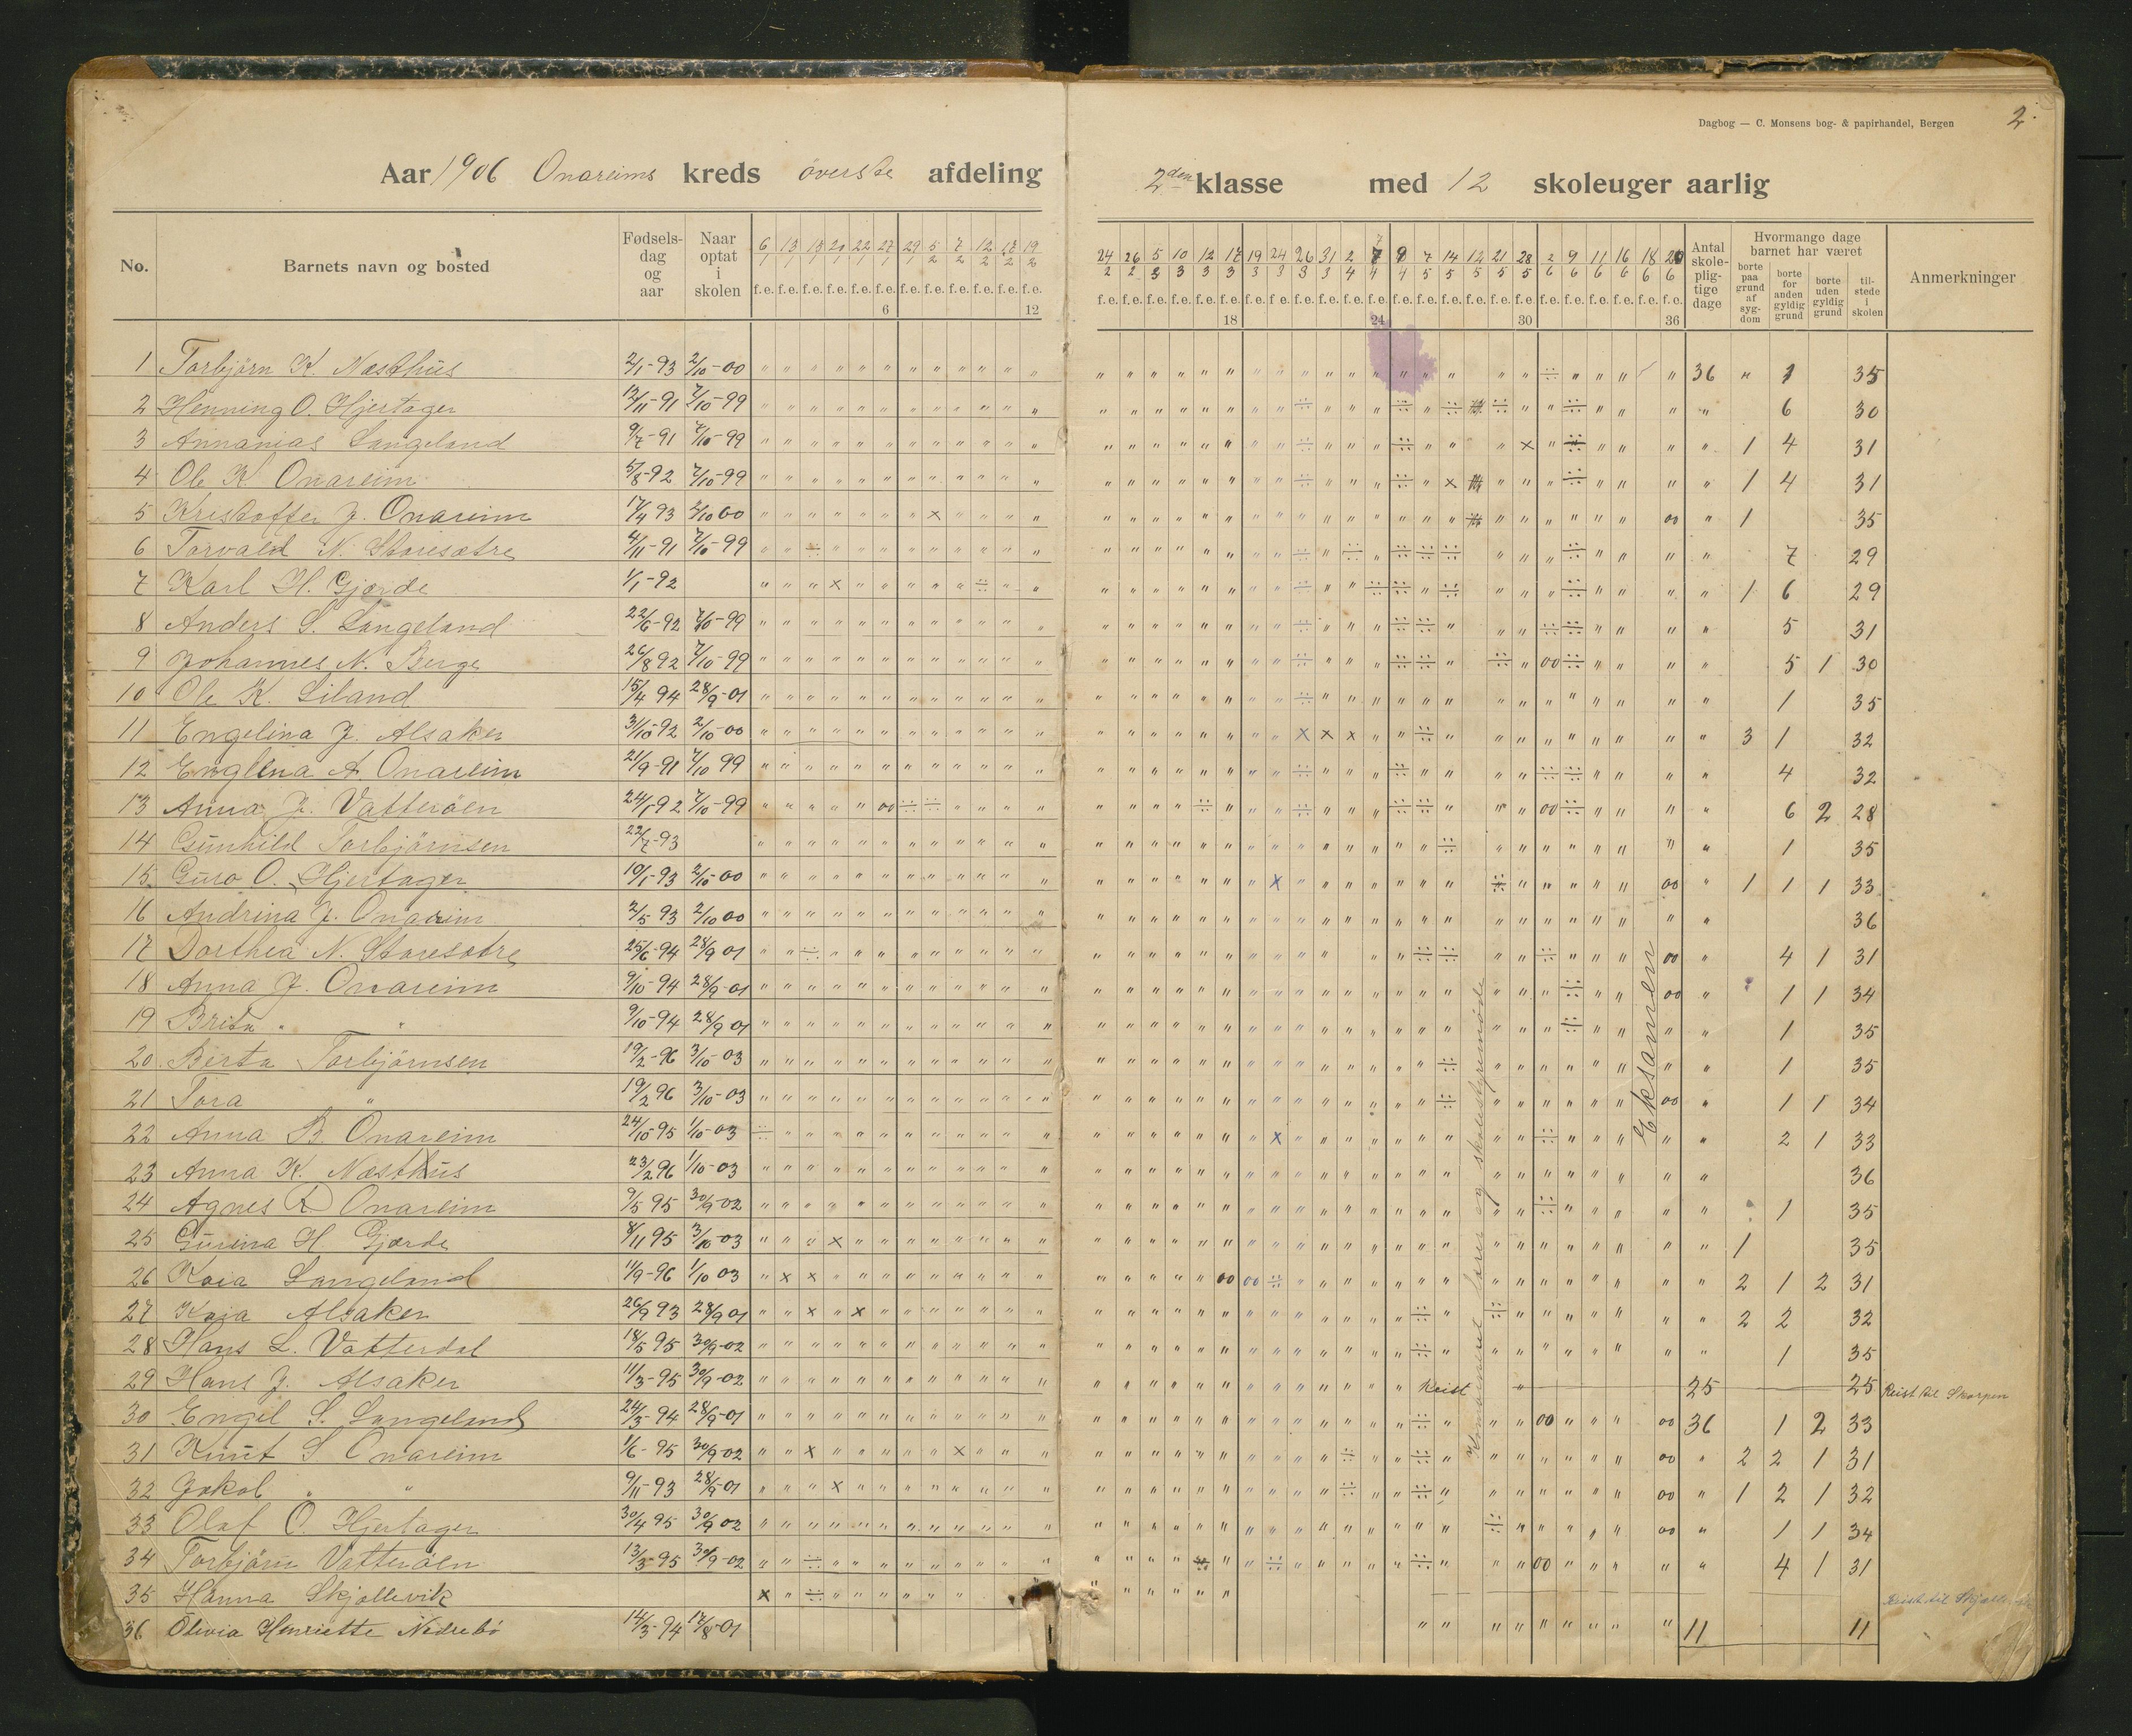 Dagbog — C. Monsens bog- & papirhandel, Bergen 2.
Aar 1906 Onareims kreds överste afdeling 2den klasse med 12 skoleuger aarlig
No. Barnets navn og bosted Fødselsdag og aar Naar optat i skolen 6/1 13/1 15/1 20/1 22/1 27/1 29/1 5/2 7/2 12/2 17/2 19/2 24/2 26/2 5/3 10/3 12/3 17/3 19/3 24/3 26/3 31/3 2/4 7/4 9/4 7/5 14/5 12/5 21/5 28/5 2/6 9/6 11/6 16/6 18/6 20/6 Antal skolepligtige dage Hvormange dage barnet har været borte paa grund af sygdom borte for anden gyldig grund borte uden gyldig grund tilstede i skolen Anmerkninger
f.e. f.e. f.e. f.e. f.e. f.e. f.e. f.e. f.e. f.e. f.e. f.e. f.e. f.e. f.e. f.e. f.e. f.e. f.e. f.e. f.e. f.e. f.e. f.e. f.e. f.e. f.e. f.e. f.e. f.e. f.e. f.e. f.e. f.e. f.e. f.e.
6 12 18 24 30 36
1 Torbjörn K. Næsthus 2/1-93 2/10-00 36 " 1 35
2 Henning O. Hjertager 13/11-91 7/10-99 " 6 30
3 Annanias Langeland 9/7-91 7/10-99 " 1 4 31
4 Ole K Onareim 5/8-92 7/10-99 " 1 4 31
5 Kristoffer J. Onareim 17/4 93 2/10 00 " 1 35
6 Torvald N. Storesætre 4/11-91 7/10-99 " 7 29
7 Karl H. Gjærde 1/1-92 " 1 6 29
8 Anders S. Langeland 22/6-92 7/10-99 " 5 31
9 Johannes N. Berge 26/8 92 7/10-99 " 5 1 30
10 Ole K. Liland 15/4 94 28/9-01 " 1 35
11 Engelina J. Alsaker 3/10-92 2/10-00 " 3 1 32
12 Englina A Onareim 21/9-91 7/10 99 " 4 32
13 Anna J. Vatteröen 24/1-92 7/10-99 " 6 2 28
14 Gunhild Torbjörnsen 22/7-93 " 1 35
15 Guro O. Hjertager 10/1-93 2/10-00 " 1 1 1 33
16 Andrina J. Onareim 2/5 93 2/10 00 " 36
17 Dorthea N. Storesætre 25/6-94 28/9 01 " 4 1 31
18 Anna J. Onareim 9/10-94 28/9-01 " 1 1 34
19 Brita " " 9/10-94 28/9 01 " 1 35
20 Berta Torbjörnsen 19/2-96 3/10-03 " 1 35
21 Tora " 19/2 96 3/10-03 " 1 1 34
22 Anna B Onareim 24/10-95 1/10-03 " 2 1 33
23 Anna K. Næsthus 23/2 96 1/10-03 " 36
24 Agnes R Onareim 9/5 95 30/9-02 " 1 35
25 Gurina H. Gjærde 8/11 95 3/10-03 " 1 35
26 Kaia Langeland 11/9-96 1/10 03 " 2 1 2 31
27 Kaia Alsaker 26/9 93 28/9 01 " 2 2 32
28 Hans L. Vatterdal 18/5 95 30/9-02 " 1 35
29 Hans J. Alsaker 11/3-95 30/9-02 Reist 25 25 Reist til Skorpen
30 Engel S. Langeland 24/3-94 28/9-01 36 1 2 33
31 Knut S Onareim 1/6-95 30/9-02 " 2 2 1 31
32 Jakob " " 9/11-93 28/9-01 " 1 2 1 32
33 Olaf O. Hjertager 30/4 95 30/9 02 " 1 1 34
34 Torbjörn Vatteröen 13/3-95 30/9-02 " 4 1 31
35 Hanna Skjollevik Reist til
36 Olivia Henriette Nedrebö 14/3-94 17/8-01 11 11
Kommunal lærer og skolestyremöde
Eksamen